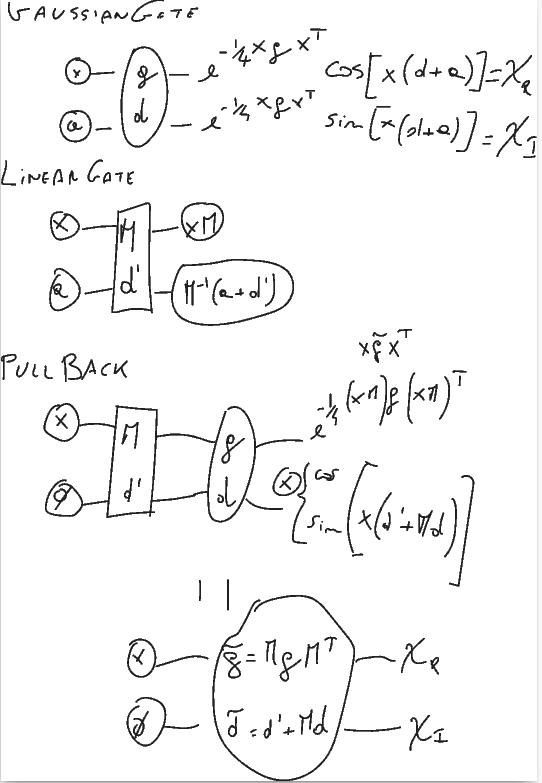 GAUSSIAN GATE
x g e^{-1/4 x g x^T} cos[x(d+a)] = χ_R
a d e^{-1/4 x g x^T} sin[x(d+a)] = χ_I
LINEAR GATE
x M xM
a d' M^{-1}(a+d')
x g̃ x^T
PULL BACK
x M g e^{-1/4 (xM) g (xM)^T}
ø d' d ⊗ { cos
sin [x(d'+Md)]
||
x g̃ = M g M^T χ_R
ø d̃ = d'+Md χ_I